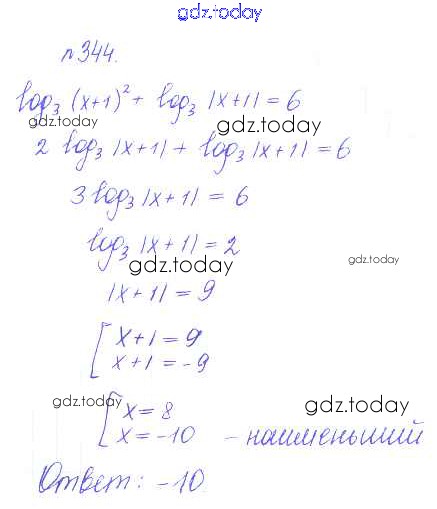 gdz.today
№344.
log₃ (x+1)² + log₃ |x+1| = 6
gdz.today
gdz.today
2 log₃ |x+1| + log₃ |x+1| = 6
3 log₃ |x+1| = 6
log₃ |x+1| = 2
gdz.today
gdz.today
|x+1| = 9
[ x+1 = 9
x+1 = -9
gdz.today
gdz.today
[ x = 8
x = -10 - наименьший
Ответ: -10
gdz.today
gdz.today